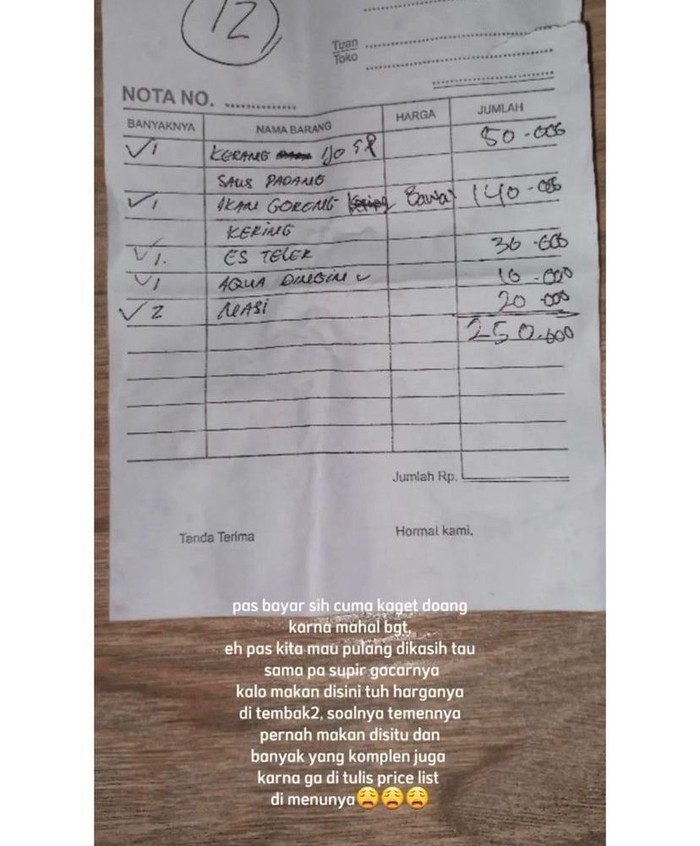 12
Tuan
Toko
NOTA NO.
BANYAKNYA NAMA BARANG HARGA JUMLAH
1 KERANG 50.000
SAUS PADANG
1 IKAN GORENG Bawal 140.000
KERING
1. ES TELER 30.000
1 AQUA DINGIN 10.000
2 NASI 20.000
250.000
Jumlah Rp.
Tanda Terima
Hormat kami,
pas bayar sih cuma kaget doang
karna mahal bgt,
eh pas kita mau pulang dikasih tau
sama pa supir gocarnya
kalo makan disini tuh harganya
di tembak2, soalnya temennya
pernah makan disitu dan
banyak yang komplen juga
karna ga di tulis price list
di menunya😩😩😩